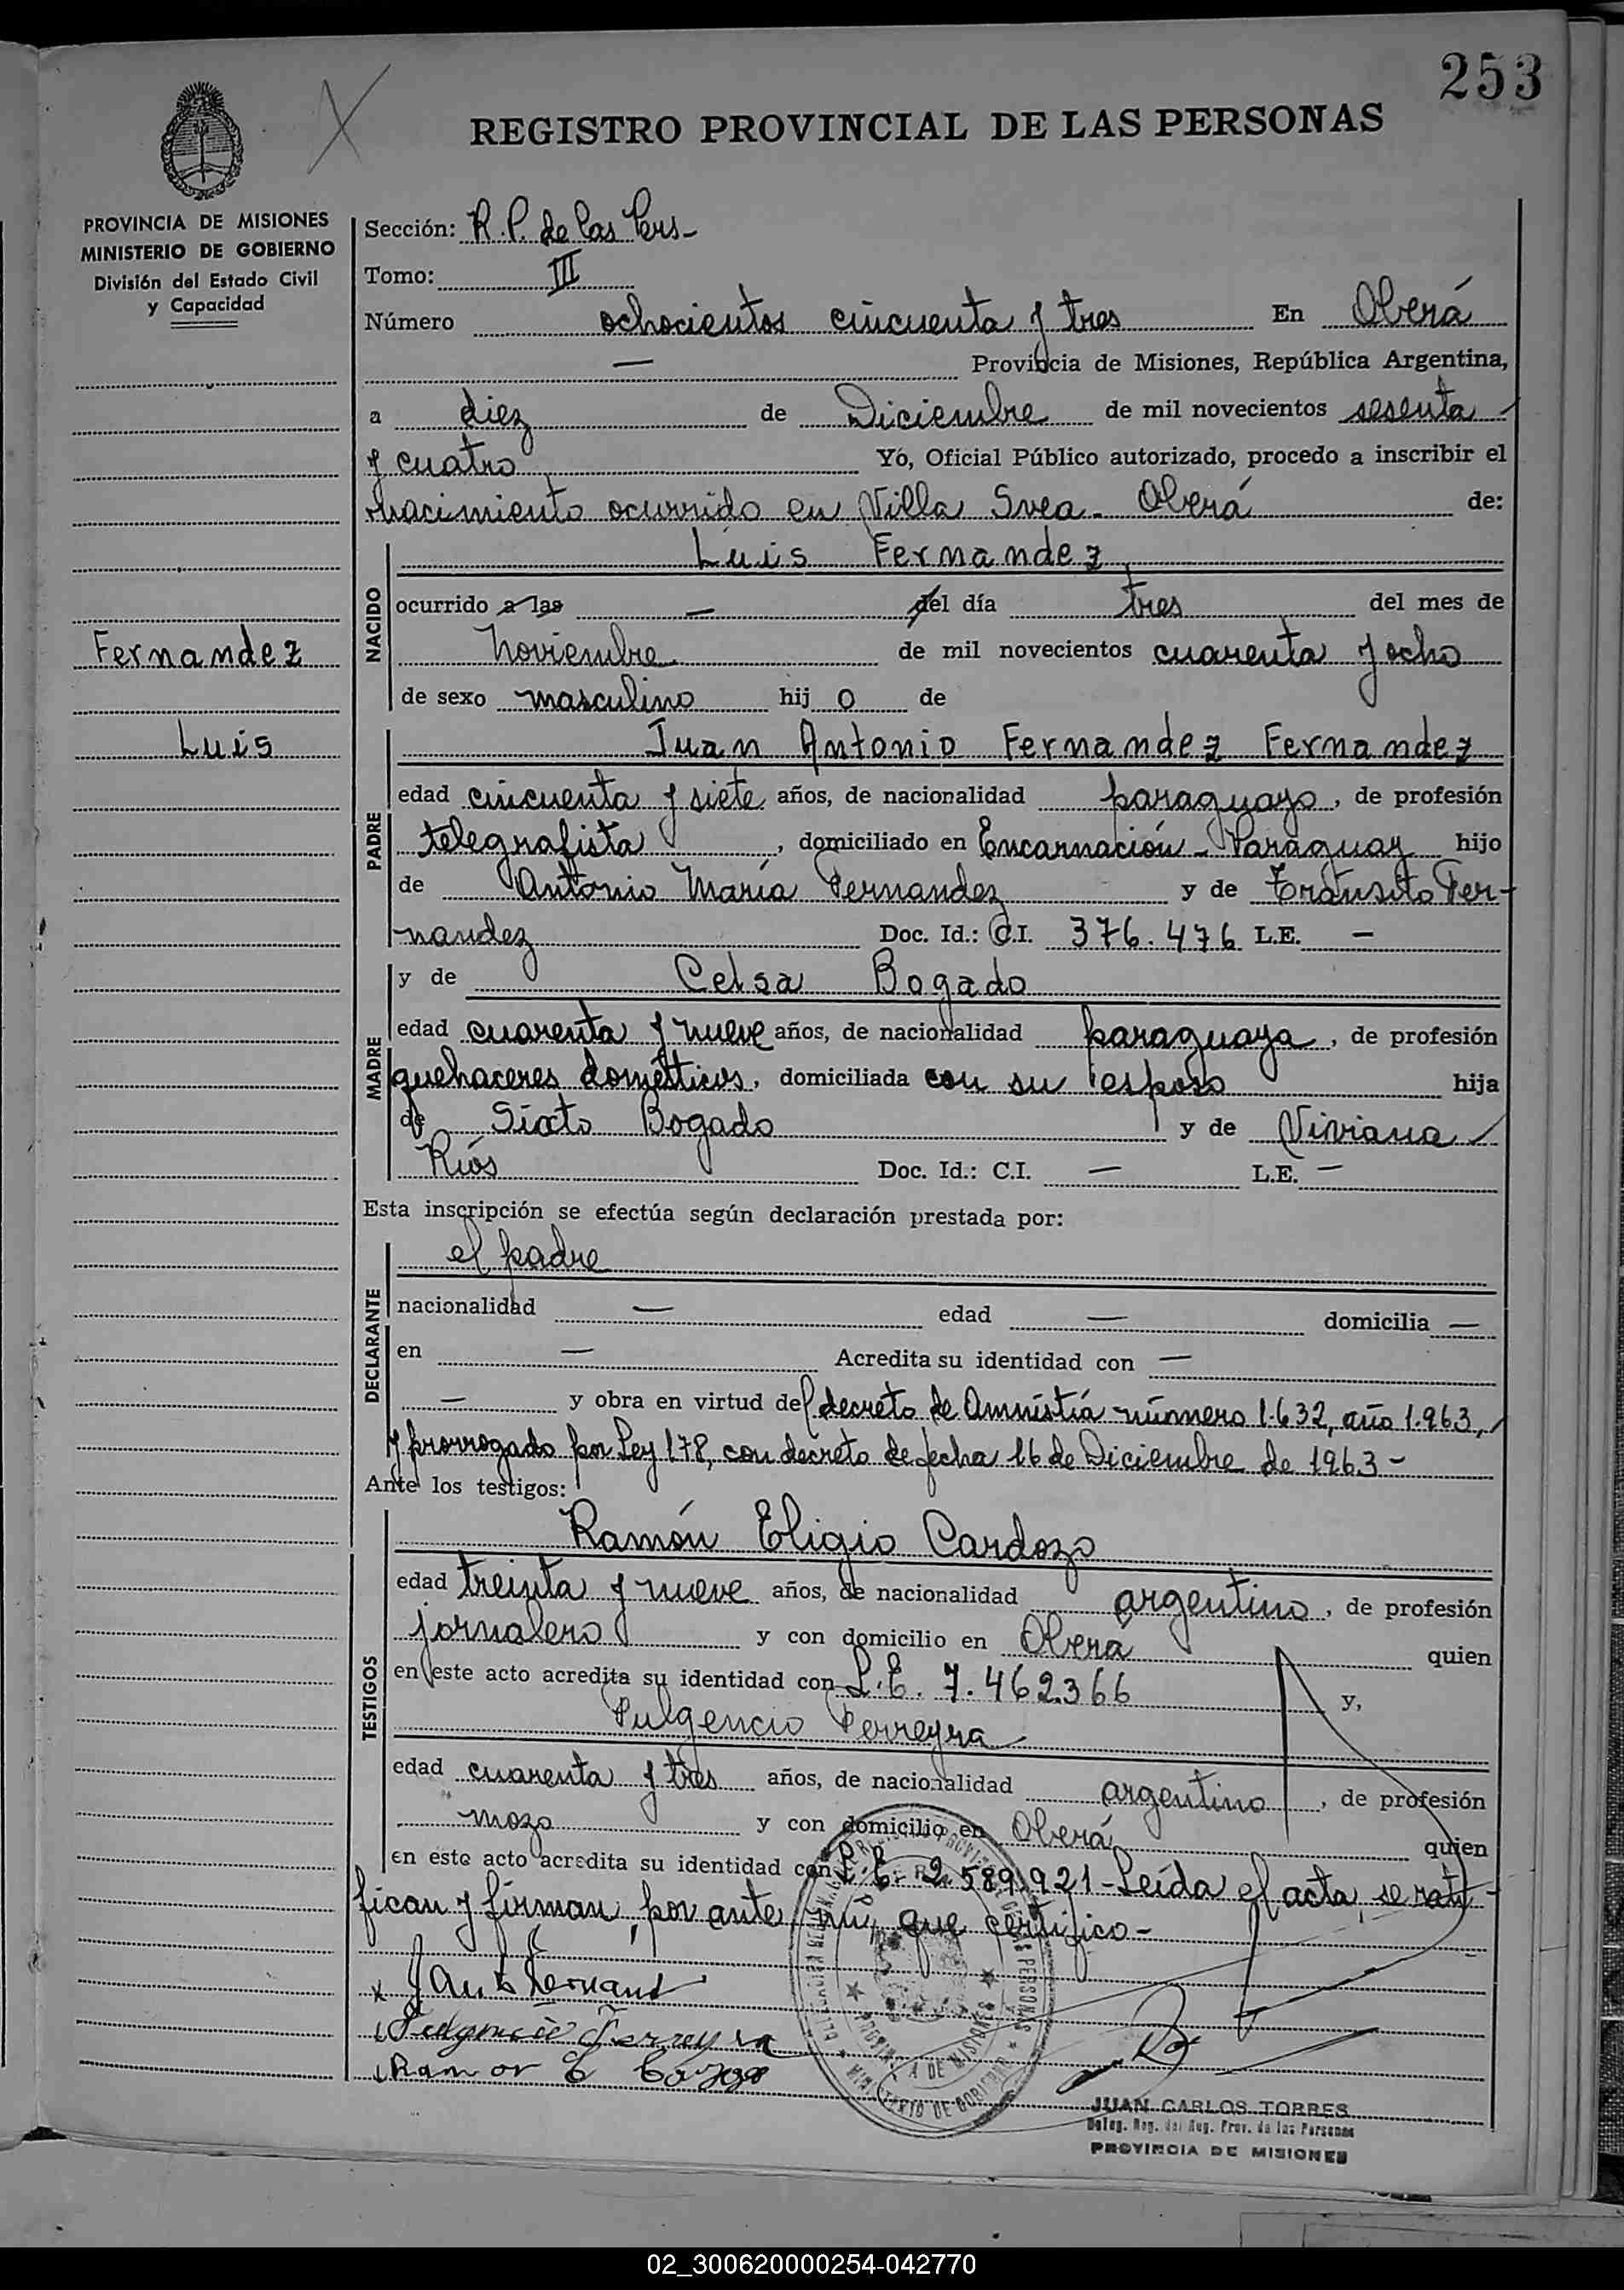 253
REGISTRO PROVINCIAL DE LAS PERSONAS
PROVINCIA DE MISIONES
MINISTERIO DE GOBIERNO
División del Estado Civil
y Capacidad
Fernandez
Luis
Sección: R.P. de las Pers-
Tomo: III
Número ochocientos cincuenta y tres En Oberá
— Provincia de Misiones, República Argentina,
a diez de Diciembre de mil novecientos sesenta
y cuatro Yo, Oficial Público autorizado, procedo a inscribir el
nacimiento ocurrido en Villa Svea - Oberá de:
NACIDO
Luis Fernandez
ocurrido a las — del día tres del mes de
Noviembre de mil novecientos cuarenta y ocho
de sexo masculino hij o de
PADRE
Juan Antonio Fernandez Fernandez
edad cincuenta y siete años, de nacionalidad paraguayo, de profesión
telegrafista, domiciliado en Encarnación - Paraguay hijo
de Antonio María Fernandez y de Tránsito Fer-
nandez Doc. Id.: C.I. 376.476 L.E. —
MADRE
y de Celsa Bogado
edad cuarenta y nueve años, de nacionalidad paraguaya, de profesión
quehaceres domésticos, domiciliada con su esposo hija
de Sixto Bogado y de Viviana
Ríos Doc. Id.: C.I. — L.E. —
Esta inscripción se efectúa según declaración prestada por:
DECLARANTE
el padre
nacionalidad — edad — domicilia —
en — Acredita su identidad con —
— y obra en virtud del decreto de Amnistía número 1.632, año 1.963,
y prorrogado por Ley 178, con decreto de fecha 16 de Diciembre de 1963-
Ante los testigos:
TESTIGOS
Ramón Eligio Cardozo
edad treinta y nueve años, de nacionalidad argentino, de profesión
jornalero y con domicilio en Oberá quien
en este acto acredita su identidad con L.E. 7.462.366 y,
Fulgencio Ferreyra
edad cuarenta y tres años, de nacionalidad argentino, de profesión
mozo y con domicilio en Oberá quien
en este acto acredita su identidad con L.E. 2.589.921 - Leída el acta, se rati-
fican y firman, por ante mi, que certifico-
Fulgencio Ferreyra
Ramon E
PROVINCIA DE MISIONES
MINISTERIO DE GOBIERNO
JUAN CARLOS TORRES
Deleg. Reg. del Reg. Prov. de las Personas
PROVINCIA DE MISIONES
02_300620000254-042770